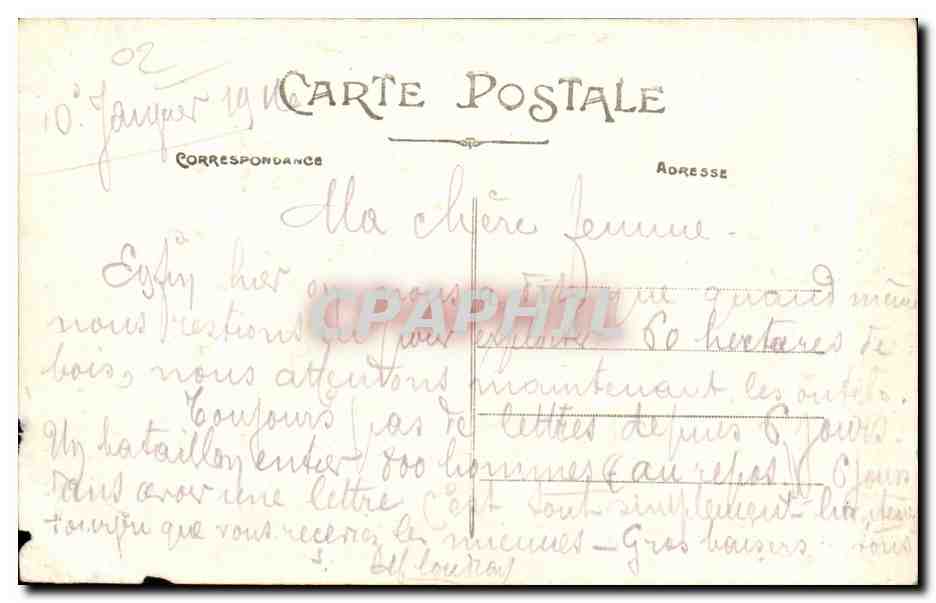 02
10 Janvier 1916
CARTE POSTALE
CORRESPONDANCE
ADRESSE
Ma chère femme -
Enfin hier on nous a dit que quand même
nous restions ici pour exploiter 60 hectares de
bois, nous attendons maintenant les outils.
Toujours pas de lettres depuis 6 jours.
Un bataillon entier 800 hommes (au repos) 6 jours
sans avoir une lettre C'est tout simplement
que vous recevez les miennes - Gros baisers
CPAPHIL